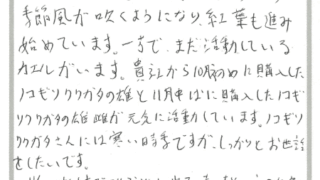 季節風が吹くようになり、紅葉も進み
始めています。一方で、まだ活動している
カエルがいます。貴社から10月初めに購入した
ノコギリクワガタの雄と11月中ばに購入したノコギ
リクワガタの雄雌が元気に活動しています。ノコギリ
クワガタさんには寒い時季ですが、しっかりとお世話
をしたいです。